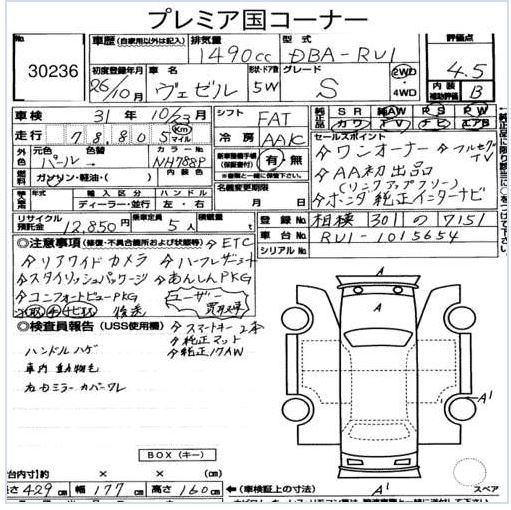 プレミア国コーナー
No. 30236
車歴 (自家用以外は記入) 排気量 1490cc 型式 DBA-RU1 評価点 4.5
初度登録年月 26/10月 車名 ヴェゼル 形状・ドア数 5W グレード S 2WD 4WD 内装補助評価 B
車検 31年 10/23月 シフト FAT 純正品 SR 純AW PS PW
走行 78,805 Km マイル 冷房 AAC カワ TV ナビ エアB
外色 元色 色替 カラーNo
パール NH788P
新車整備手帳(保証書) 有・無
燃料 ガソリン・軽油・( )
輸入車 年式 輸入区分 ハンドル 名義変更期限
年 ディーラー・並行 左・右 月 日
セールスポイント
☆ワンオーナー ☆フルセグTV
☆AA初出品
(リンクアップフリー)
☆ホンダ純正インターナビ
リサイクル預託金 12,850円 乗車定員 5人 積載量 t
登録No 相模 301 の 7151
車台No RU1-1015654
シリアルNo
◎注意事項 (修復・不具合箇所および状態等) ☆ETC
☆リアワイドカメラ ☆ハーフレザーシート
☆スタイリッシュパッケージ ☆あんしんPKG
☆コンフォートビューPKG ユーザー買取車
後送
◎検査員報告 (USS使用欄) ☆スマートキー2本
☆純正マット
ハンドルハゲ ☆純正17AW
車内
右ドミラーカバーワレ
BOX (キー)
A
A
A1
A1
台内寸(約) × × (cm)
長さ 429cm 幅 177cm 高さ 160cm
(車検証上の寸法)
スペア